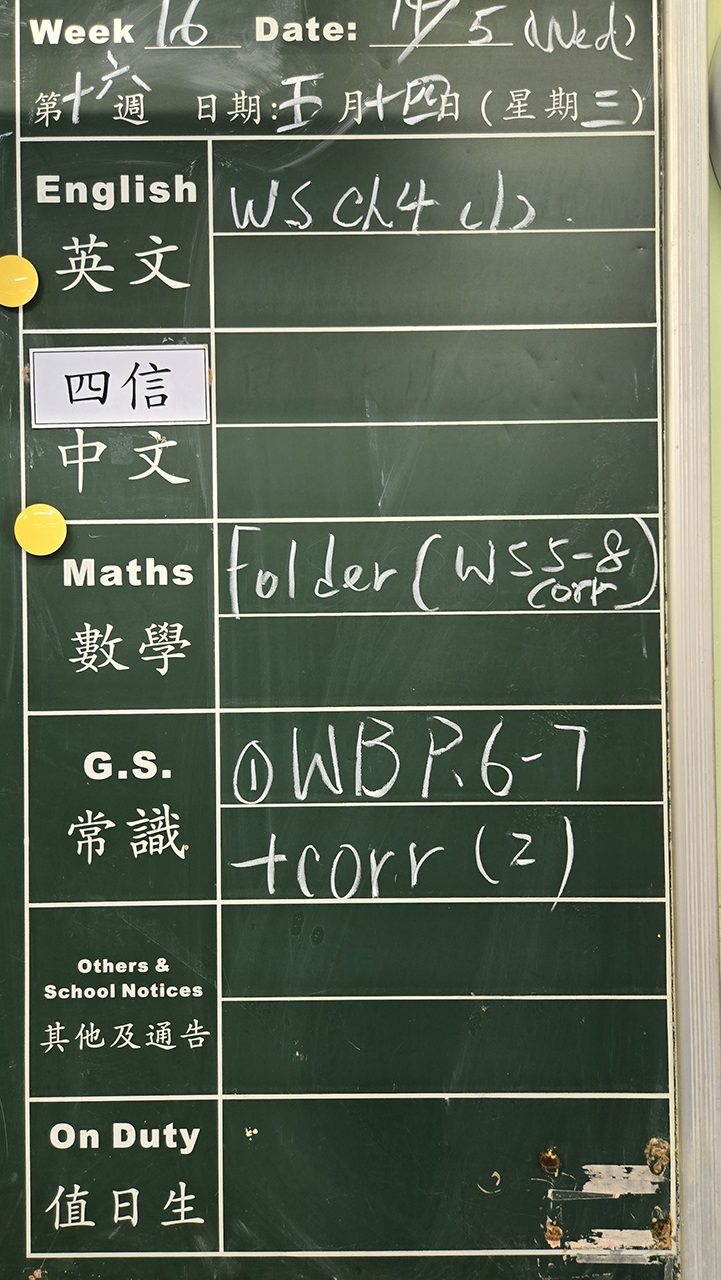 Week 16 Date: 14/5 (Wed)
第十六週 日期:五月十四日(星期三)
English WS Ch4 (1).
英文
四信
中文
Maths Folder (WS 5-8 corr)
數學
G.S. ① WB P.6-7
常識 +corr (2)
Others &
School Notices
其他及通告
On Duty
值日生